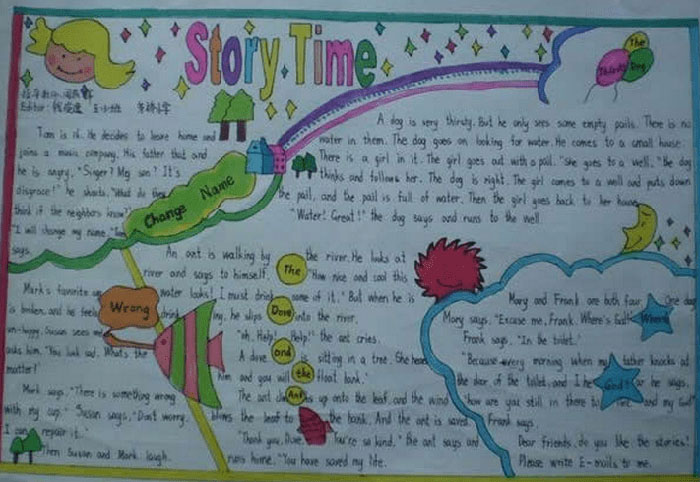 Story Time
Editor:
Tom is 18. He decides to leave home and
joins a music company. His father that and
he is angry. "Singer? My son? It's
disgrace!" he shouts. "What do they
think if the neighbors know?"
"I will change my name." Tom
says.
Change Name
The
Thirsty Dog
A dog is very thirsty. But he only sees some empty pails. There is no
water in them. The dog goes on looking for water. He comes to a small house.
There is a girl in it. The girl goes out with a pail. "She goes to a well." The dog
thinks and follows her. The dog is right. The girl comes to a well and puts down
the pail, and the pail is full of water. Then the girl goes back to her house.
"Water! Great!" the dog says and runs to the well.
Mark's favorite
is broken, and he feels
un-happy. Susan sees
asks him. "You look sad. What's the
matter?"
Mark says, "There is something wrong
with my cup." Susan says, "Don't worry.
I can repair it."
Then Susan and Mark laugh.
Wrong
An ant is walking by the river. He looks at
river and says to himself, "How nice and cool this
water looks! I must drink some of it." But when he is
drinking, he slips into the river.
"oh, Help! Help!" the ant cries.
A dove is sitting in a tree. She hears
him and you will float bank."
The ant climbs up onto the leaf, and the wind
blows the leaf to the bank. And the ant is saved.
"Thank you, Dove. You're so kind." the ant says and
runs home. "You have saved my life.
The
Dove
and
the
Ant
Mary and Frank are both four. One day
Mary says, "Excuse me, Frank. Where's
Frank says, "In the toilet."
"Because every morning when my father knocks at
the door of the toilet, and he says,
"how are you still in there and my God"
Frank says.
Where
God
Dear friends, do you like the stories?
Please write E-mails to me.